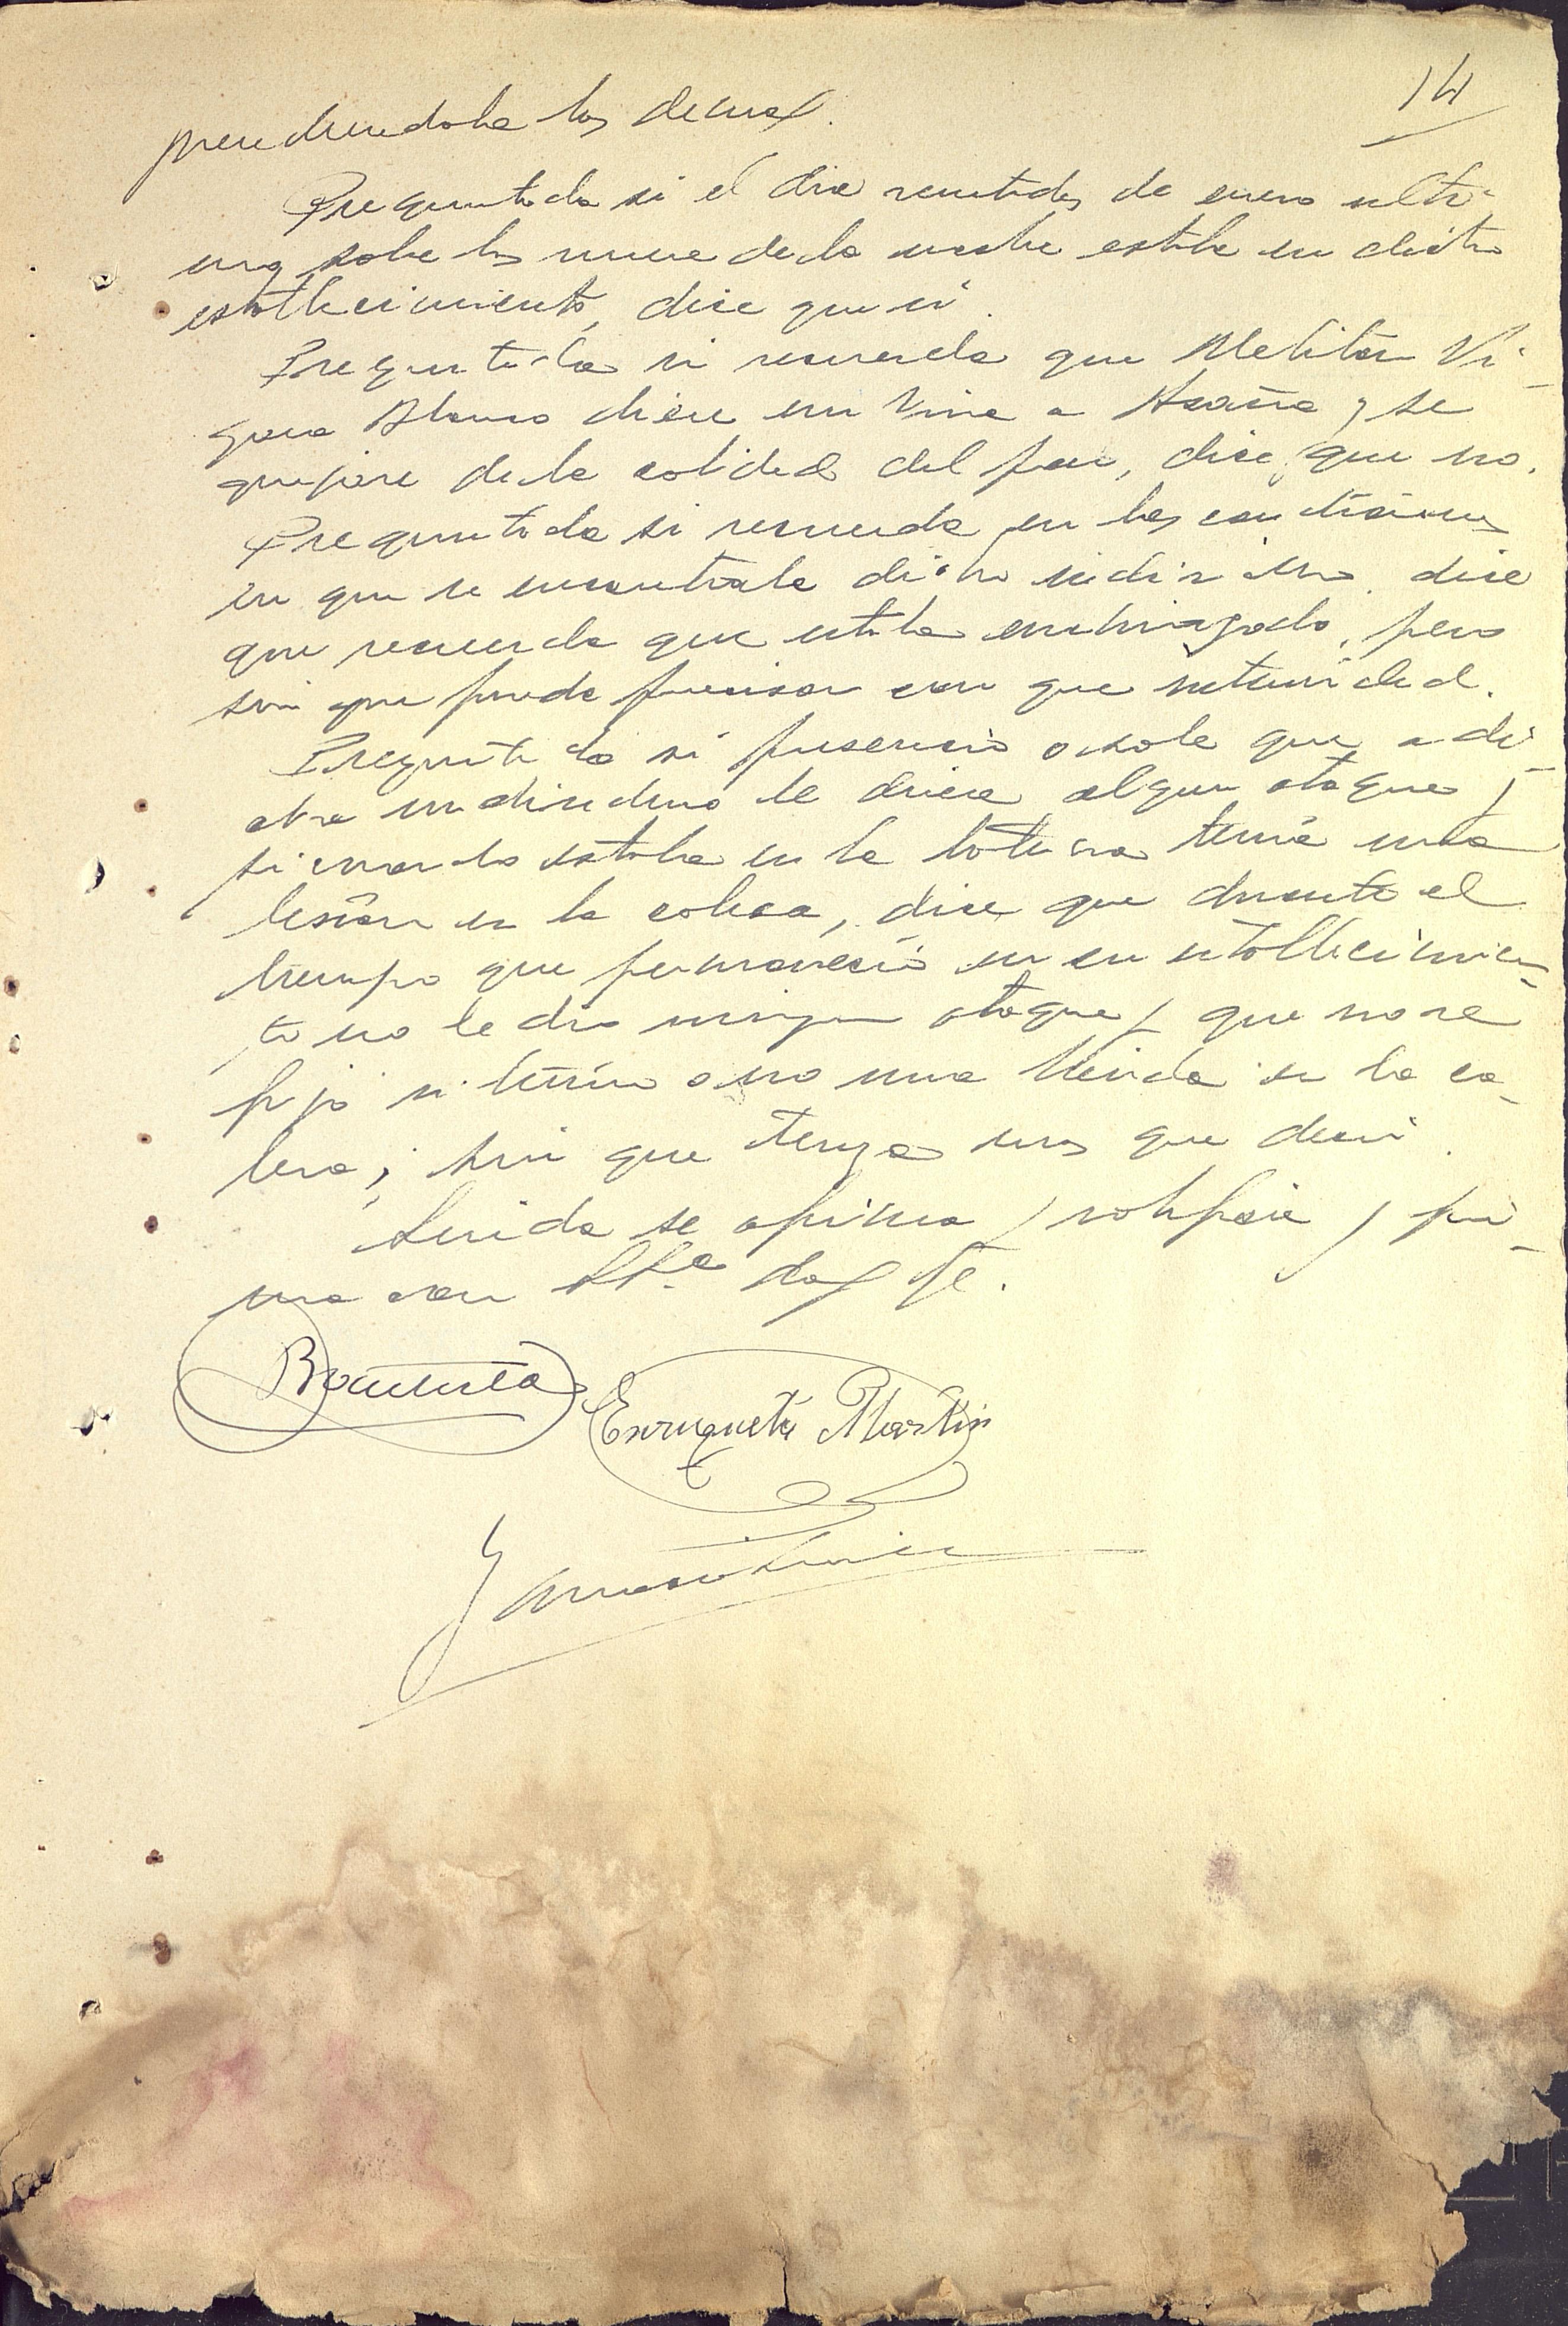 14
prendiendole las demas.
Preguntada si el dia veintidos de enero ulti-
mo, sobre las nueve de la noche estaba en dicho
establecimiento, dice que si.
Preguntada si recuerda que Melitón Vi-
gara Blanco diese un viva a Azaña y se
quejase de la calidad del pan, dice, que no.
Preguntada si recuerda en las condiciones
en que se encontraba dicho individuo, dice
que recuerda que estaba embriagado, pero
sin que pueda precisar con que intensidad.
Preguntada si presenció o sabe que a di-
cho individuo le diese algun ataque y
si cuando estaba en la taberna tenia una
lesión en la cabeza, dice que durante el
tiempo que permaneció en su establecimien-
to no le dio ningun ataque y que no se
fijó si tenia o no una herida en la ca-
beza; sin que tenga mas que decir.
Leida se afirma y ratifica y fir-
ma con SSª doy fe.
Bautista
Enriqueta Martin